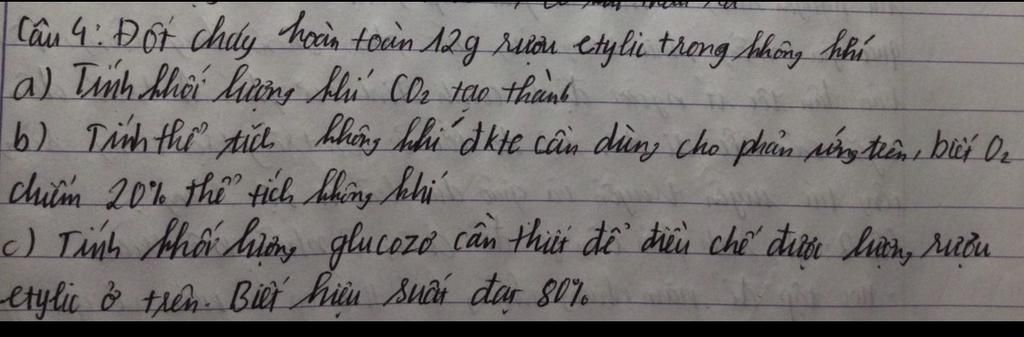 Câu 4: Đốt cháy hoàn toàn 12g rượu etylic trong không khí
a) Tính khối lượng khí CO2 tạo thành
b) Tính thể tích không khí đktc cần dùng cho phản ứng trên, biết O2
chiếm 20% thể tích không khí
c) Tính khối lượng glucozơ cần thiết để điều chế được lượng rượu
etylic ở trên. Biết hiệu suất đạt 80%